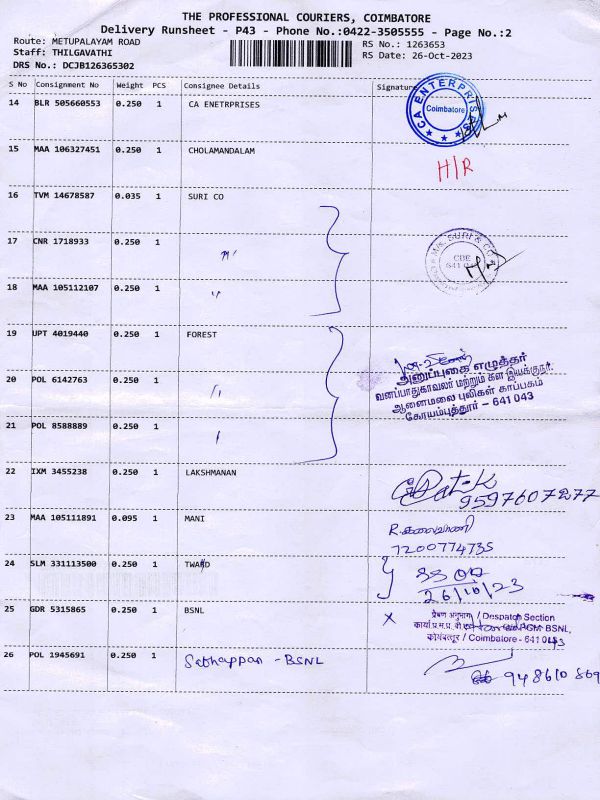 THE PROFESSIONAL COURIERS, COIMBATORE
Delivery Runsheet - P43 - Phone No.:0422-3505555 - Page No.:2
Route: METUPALAYAM ROAD
Staff: THILGAVATHI
DRS No.: DCJB126365302
RS No.: 1263653
RS Date: 26-Oct-2023
S No Consignment No Weight PCS Consignee Details Signature
14 BLR 505660553 0.250 1 CA ENETRPRISES
CA ENTERPRISES
Coimbatore
15 MAA 106327451 0.250 1 CHOLAMANDALAM
H/R
16 TVM 14678587 0.035 1 SURI CO
17 CNR 1718933 0.250 1 〃
M/s. SURI & CO.
CBE
641 043
18 MAA 105112107 0.250 1 〃
19 UPT 4019440 0.250 1 FOREST
அனுப்புகை எழுத்தர்
வனப்பாதுகாவலர் மற்றும் கள இயக்குநர்
ஆனைமலை புலிகள் காப்பகம்
கோயம்புத்தூர் - 641 043
20 POL 6142763 0.250 1 〃
21 POL 8588889 0.250 1
22 IXM 3455238 0.250 1 LAKSHMANAN
9597607277
23 MAA 105111891 0.095 1 MANI
R. கலைவாணி
7200774735
24 SLM 331113500 0.250 1 TWAD
26/10/23
25 GDR 5315865 0.250 1 BSNL
X
प्रेषण अनुभाग / Despatch Section
PGM BSNL,
कोयंबत्तूर / Coimbatore - 641 043
26 POL 1945691 0.250 1 Sabhappan - BSNL
948610869